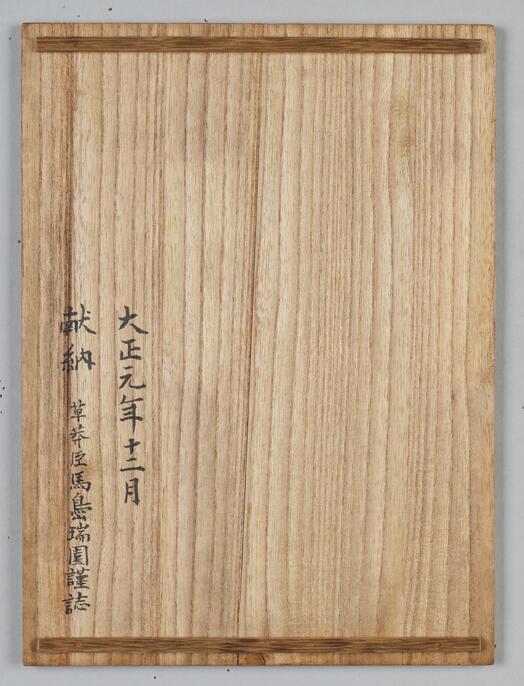 大正元年十二月
献納 草莽臣馬島瑞園謹誌